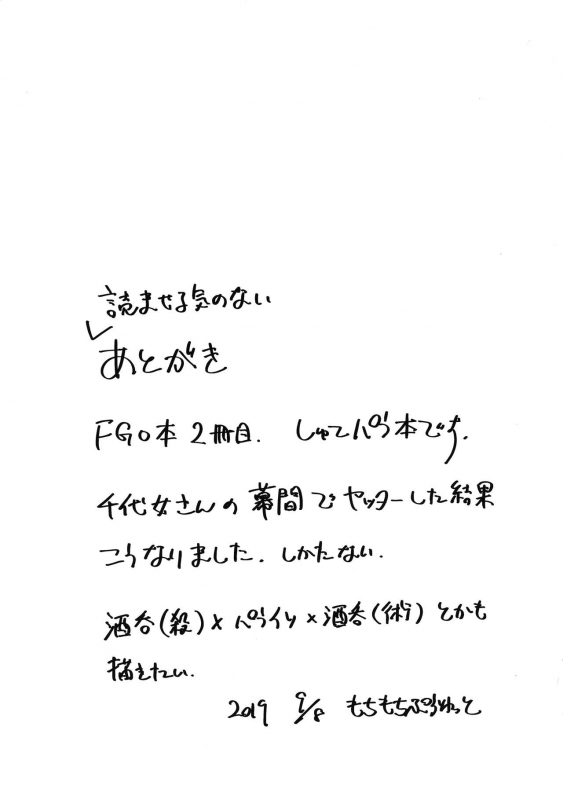 読ませる気のない
あとがき
FGO本2冊目. しゅてパラ本です.
千代女さんの幕間でヤッターした結果
こうなりました. しかたない.
酒呑(殺)×パライソ×酒呑(術)とかも
描きたい.
2019 9/8 もちもちぷりゅっと